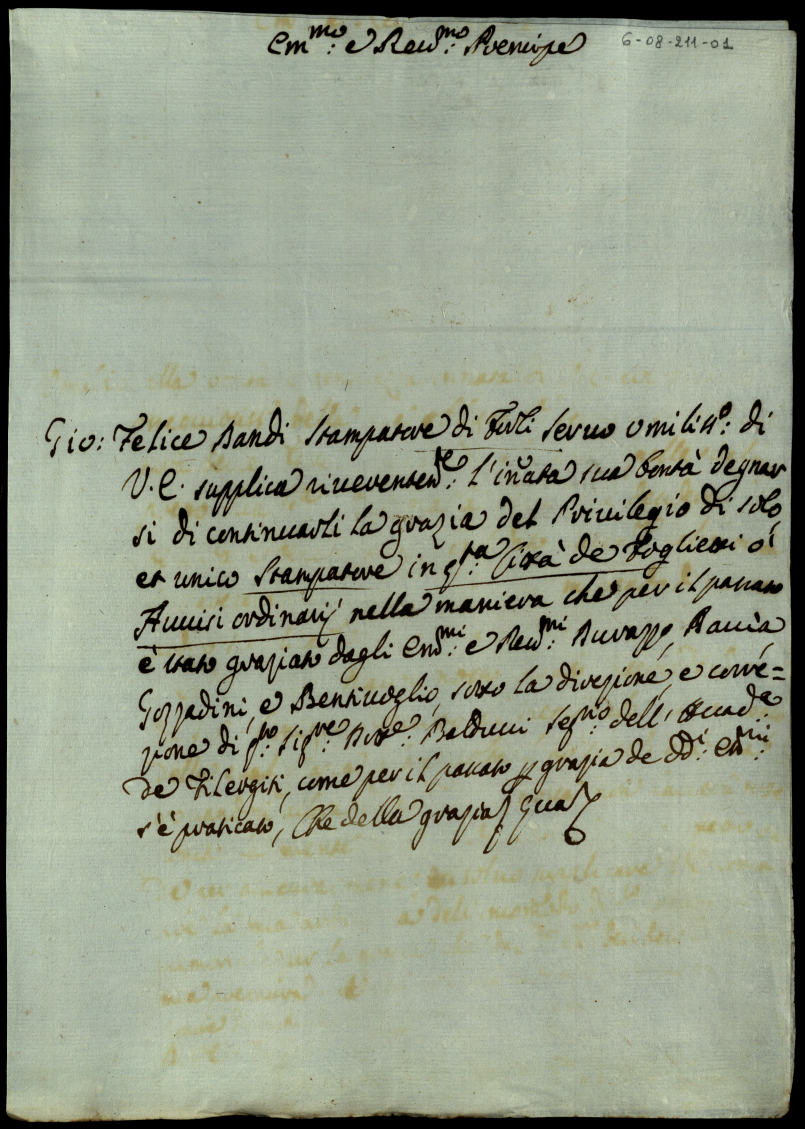 6-08-211-01
Em.mo: e Reud.mo: Prencipe
Gio: Felice Bandi Stampatore di Forlì servo umiliss.o: di
V. E. supplica riverentem.te: l'inata sua bontà degnar
si di continuarli la grazia del Privilegio di solo,
et unico Stampatore in q.sta: Città de Foglietti ò
Auvisi ordinarij nella maniera che per il passato
è stato graziato dagli Em.mi: e Reud.mi: Durazzo, Raccia
Gozzadini, e Bentivoglio, sotto la direzione, e corré=
zione di q.sto: Sig.re Dott.e: Balducci Seg.rio: dell' Accad.a
de Filergiti, come per il passato p grazia de dd.i: Em.mi:
s'è praticato, Che della grazia Quas